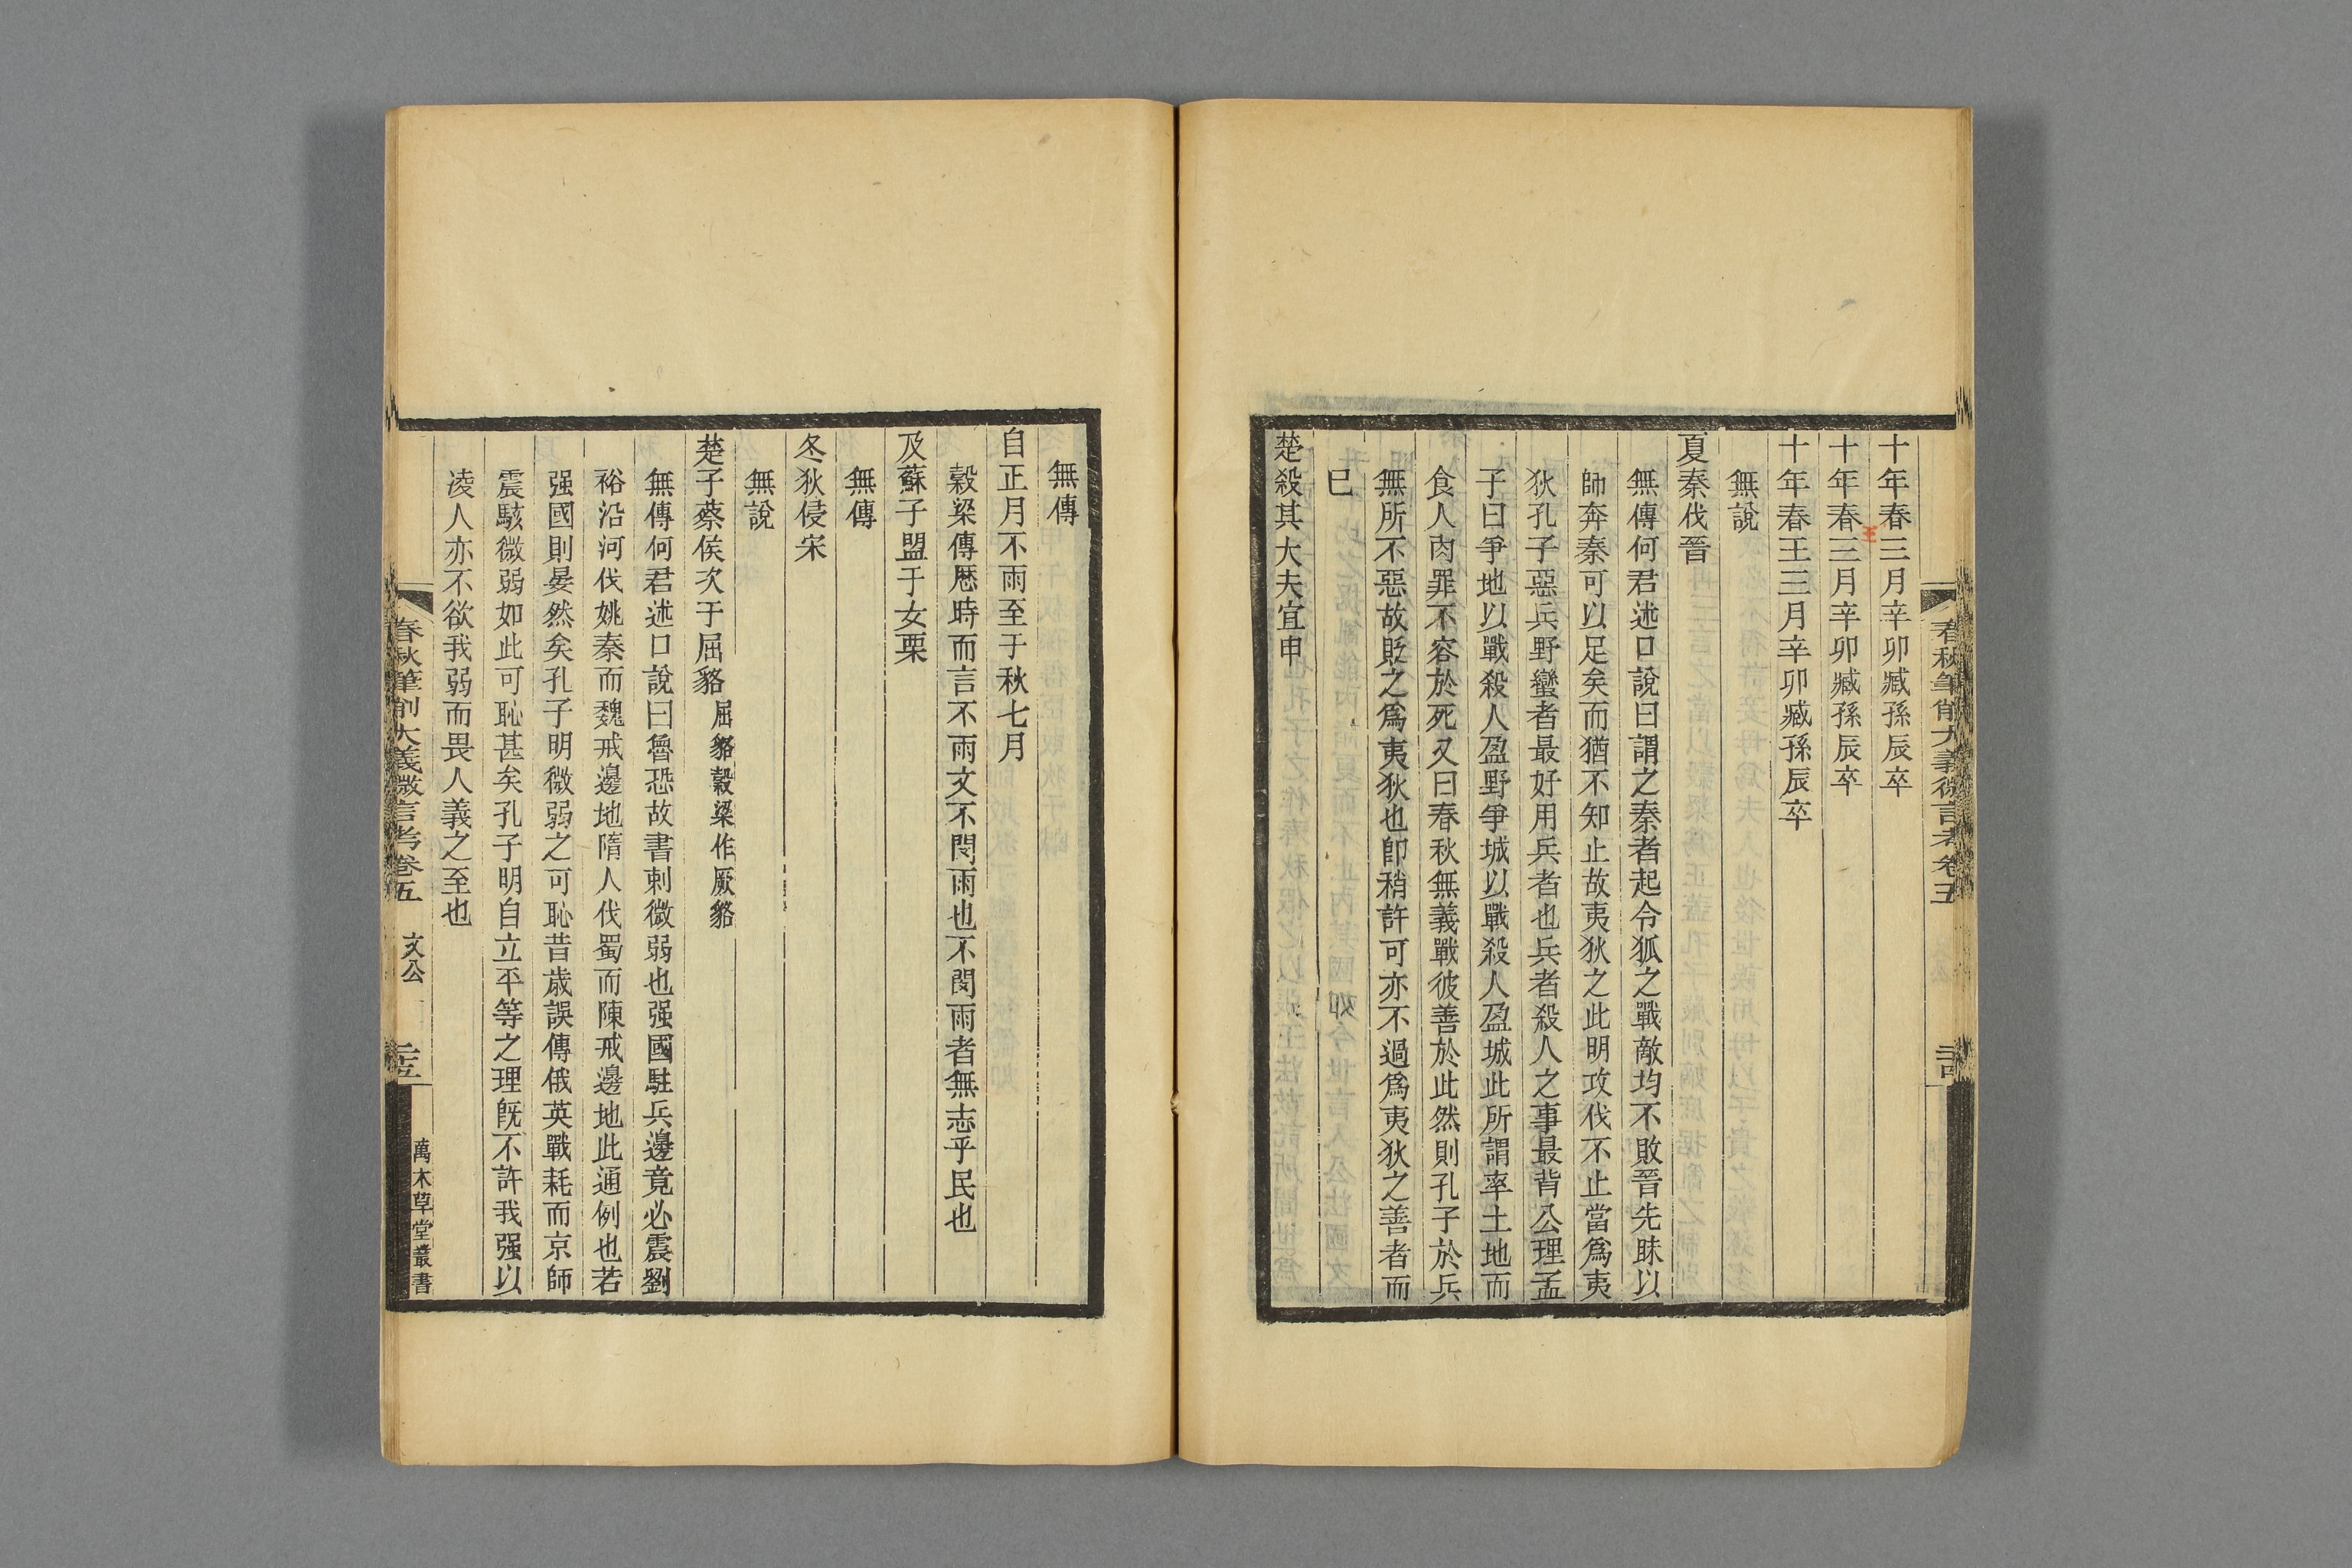 春秋筆削大義微言考卷五
十年春三月辛卯臧孫辰卒
十年春三月辛卯臧孫辰卒
王
十年春王三月辛卯臧孫辰卒
無說
夏秦伐晉
無傳何君述口說曰謂之秦者起令狐之戰敵均不敗晉先眛以
師奔秦可以足矣而猶不知止故夷狄之此明攻伐不止當爲夷
狄孔子惡兵野蠻者最好用兵者也兵者殺人之事最背公理孟
子曰爭地以戰殺人盈野爭城以戰殺人盈城此所謂率土地而
食人肉罪不容於死又曰春秋無義戰彼善於此然則孔子於兵
無所不惡故貶之爲夷狄也卽稍許可亦不過爲夷狄之善者而
已
楚殺其大夫宜申
無傳
自正月不雨至于秋七月
穀梁傳歷時而言不雨文不閔雨也不閔雨者無志乎民也
及蘇子盟于女栗
無傳
冬狄侵宋
無說
楚子蔡侯次于屈貉屈貉穀梁作厥貉
無傳何君述口說曰魯恐故書刺微弱也强國駐兵邊竟必震劉
裕沿河伐姚秦而魏戒邊地隋人伐蜀而陳戒邊地此通例也若
强國則晏然矣孔子明微弱之可恥昔歲誤傳俄英戰耗而京師
震駭微弱如此可恥甚矣孔子明自立平等之理既不許我强以
凌人亦不欲我弱而畏人義之至也
春秋筆削大義微言考卷五 文公 二十五 萬木草堂叢書